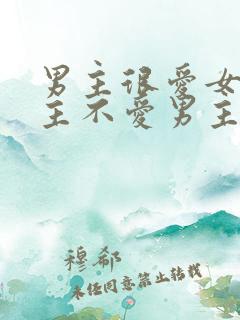 男主很爱女
主不爱男主
穆郗
未经同意禁止转载